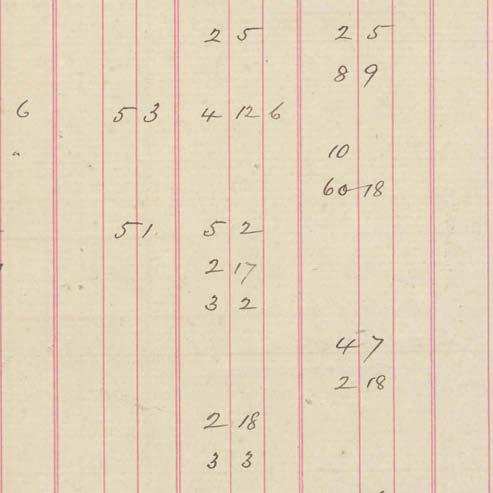 2 5 2 5
8 9
6 5 3 4 12 6
" 10
60 18
5 1 5 2
2 17
3 2
4 7
2 18
2 18
3 3